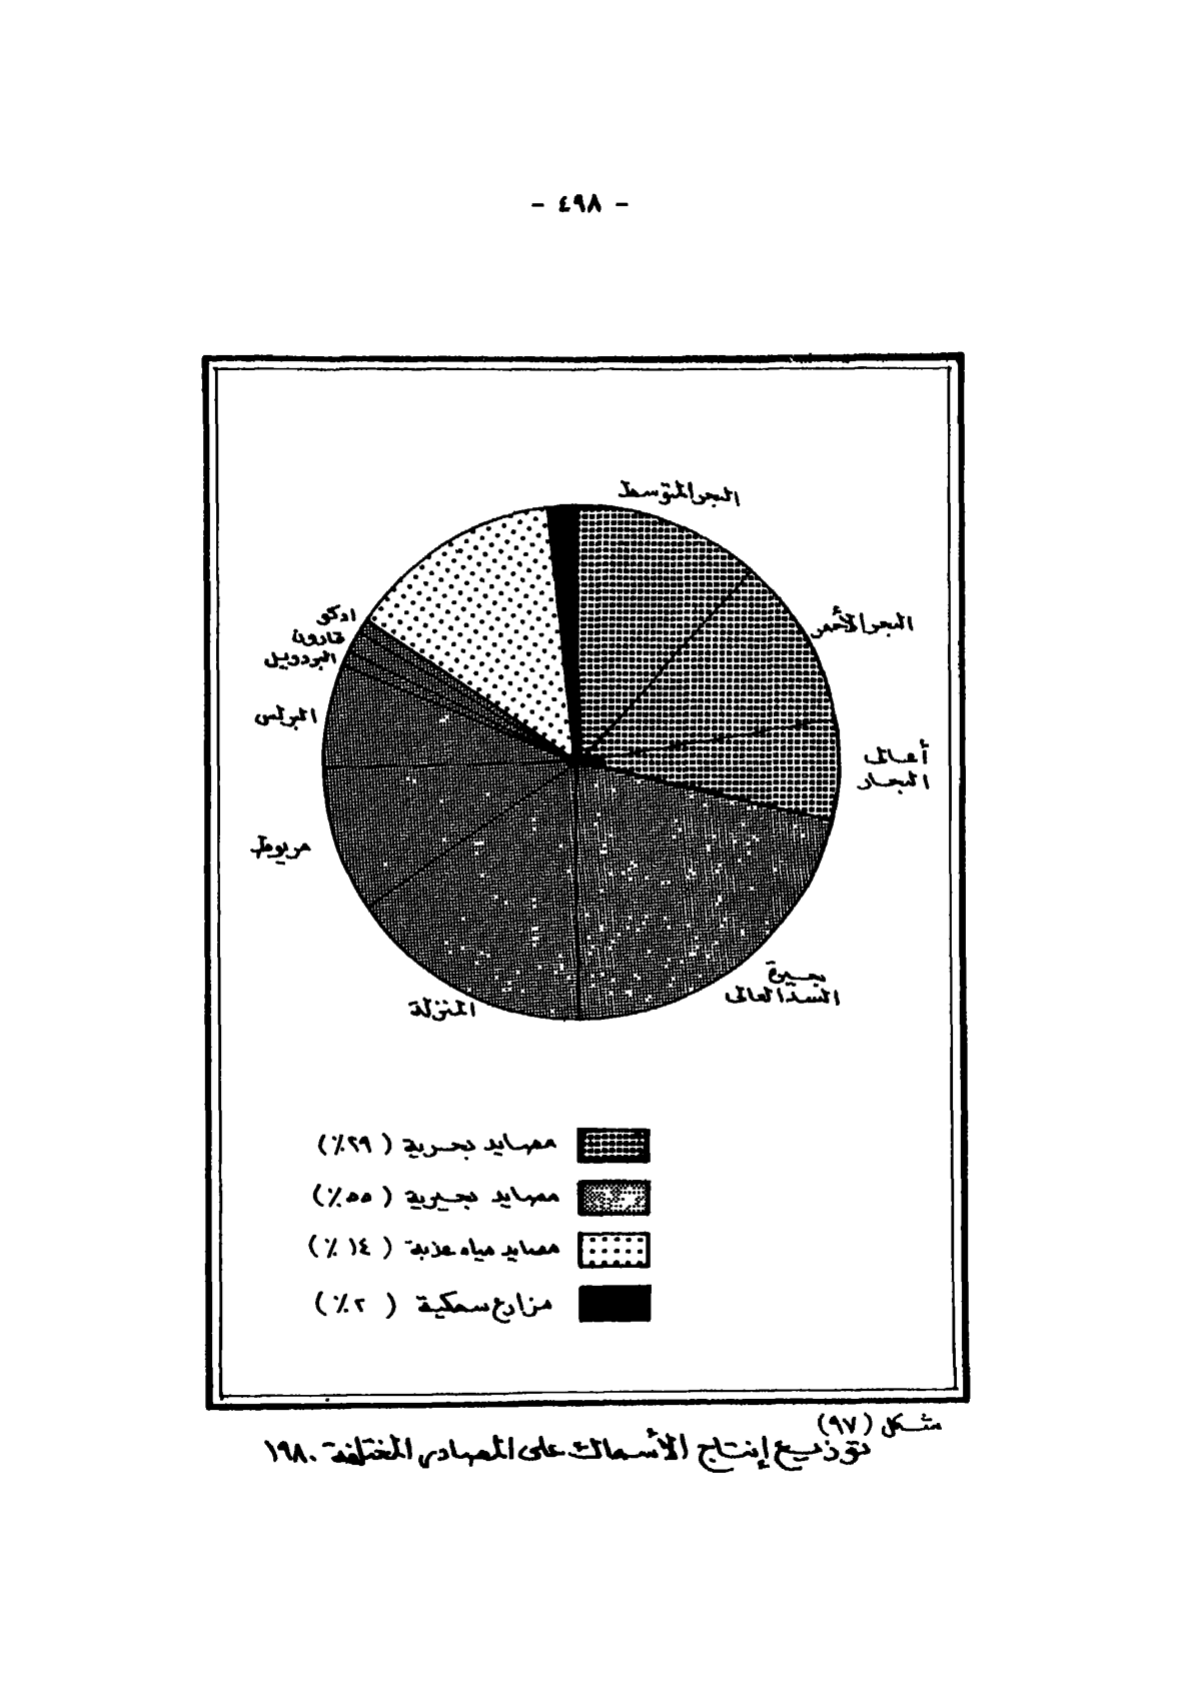 - ٤٩٨ -
البحر المتوسط
البحر الأحمر
أعالى
البحار
بحيرة
السد العالى
المنزلة
مريوط
البرلس
البردويل
قارون
ادكو
مصايد بحرية ( ٢٩٪)
مصايد بحيرية ( ٥٥٪)
مصايد مياه عذبة ( ١٤ ٪)
مزارع سمكية ( ٢٪)
شكل (٩٧)
توزيع إنتاج الأسماك على المصادر المختلفة ١٩٨٠